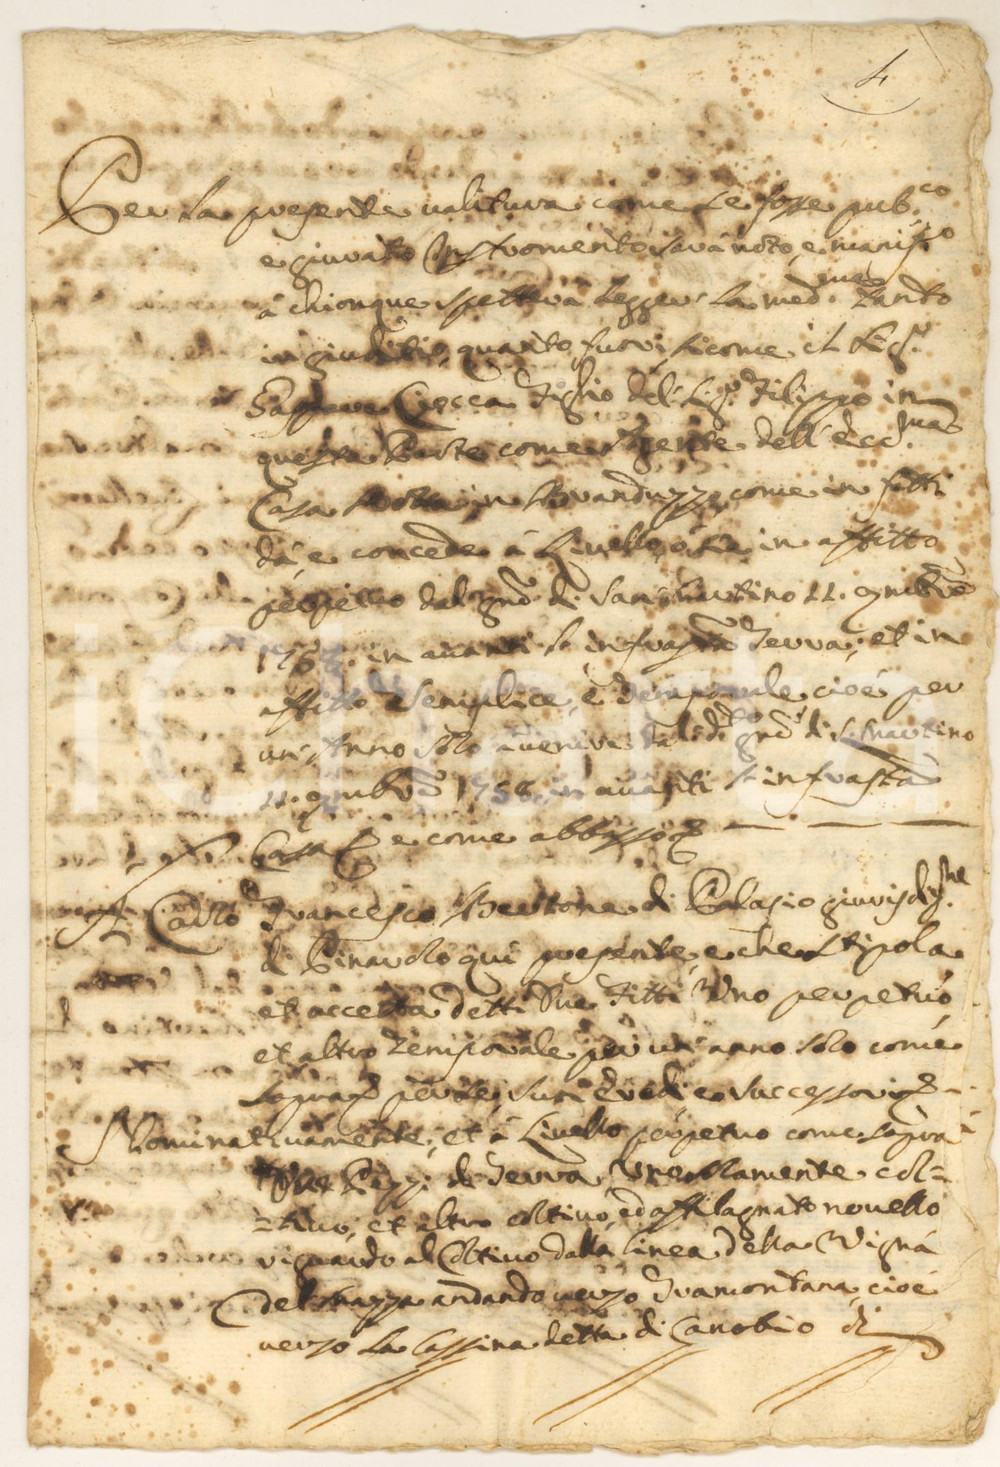 4
Per la presente valitura come se fosse pub.co
e giurato Instromento sarà noto, e manif.to
à chionque spetterà legger la med.ma tanto
in giuditio, quanto fuori sicome il Sig.r
Crocca figlio del Sig.r Filippo in
questa Parte come Agente dell'Ecc.ma
Casa in come in fatti
dà, e concede à Livello, ò sia in affitto
perpetuo dal gno di San Martino 11. 9mbre
in avanti l'infrasta Terra, et in
affitto Semplice, e Temporale cioè per
un'Anno solo à venire dal d.to gno di S. Martino
11. 9mbre 1758. in avanti l'infrasta
Casa e come abbasso
A Carlo Francesco Bertone di Palasio giurisdiz.ne
di Pinarolo qui presente, e che stipola
et accetta detti due fitti Uno perpetuo,
et altro Temporale per un'anno solo come
sopra per se, suoi Eredi e successori
Nominativamente, et à Livello perpetuo come sopra
due Pezzi di Terra Uno solamente col=
=tivo, et altro coltivo, ed affilagnato novello
riguardo al Coltivo dalla linea della Vigna
del andando verso Tramontana, cioè
verso la Cassina detta di Canobio di